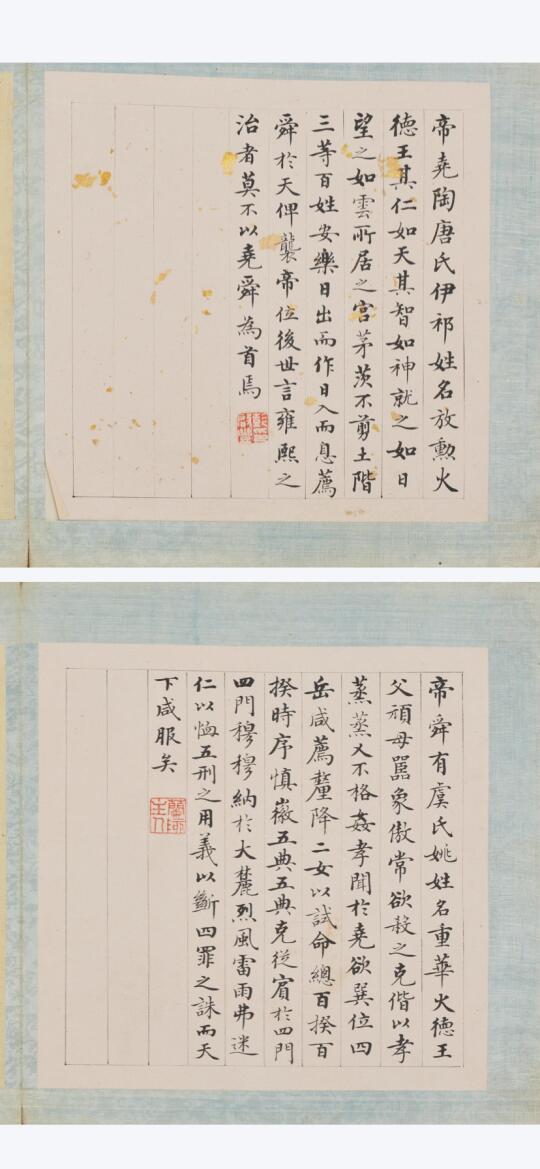 帝堯陶唐氏伊祁姓名放勲火
德王其仁如天其智如神就之如日
望之如雲所居之宮茅茨不剪土階
三等百姓安樂日出而作日入而息薦
舜於天俾襲帝位後世言雍熙之
治者莫不以堯舜為首焉
帝舜有虞氏姚姓名重華火德王
父頑母嚚象傲常欲殺之克偕以孝
蒸蒸乂不格姦孝聞於堯欲巽位四
岳咸薦釐降二女以試命總百揆百
揆時序慎徽五典五典克從賓於四門
四門穆穆納於大麓烈風雷雨弗迷
仁以恤五刑之用義以斷四罪之誅而天
下咸服矣